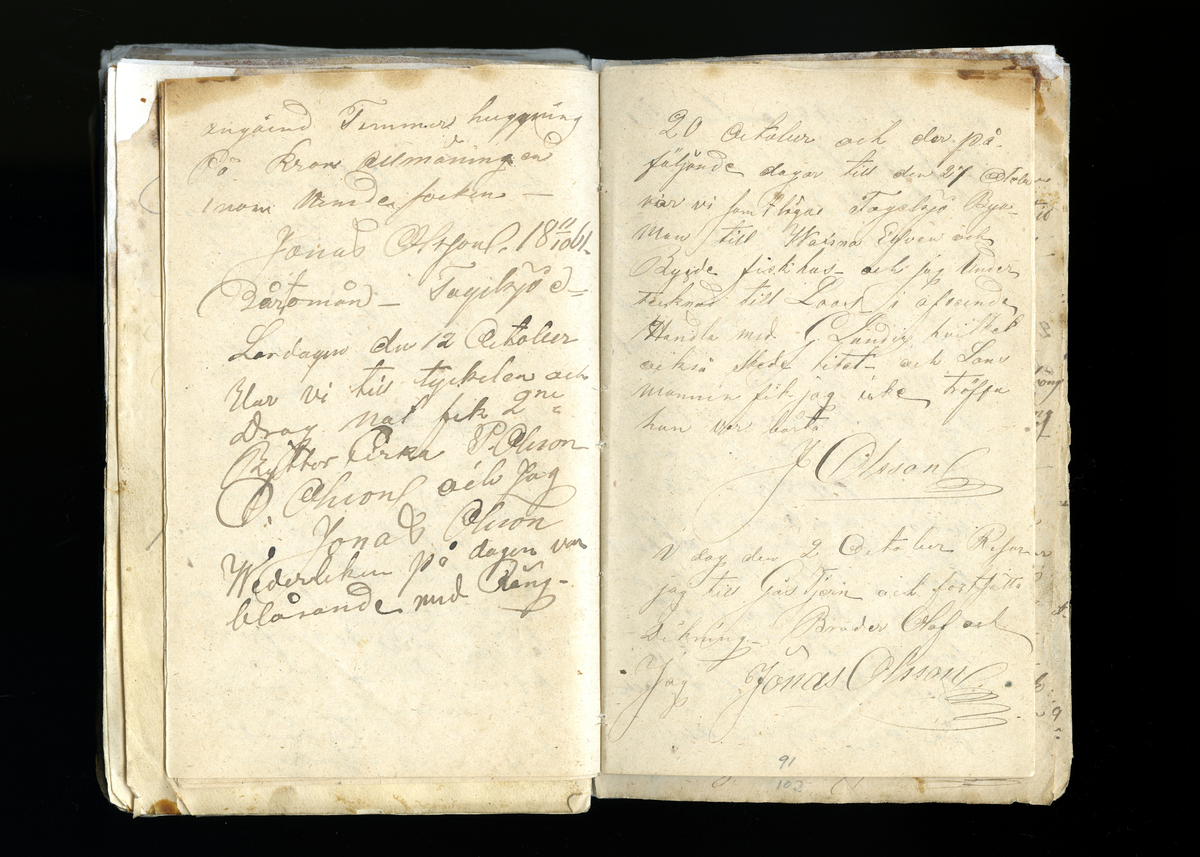 angåend Timmer huggning
På Krono Allmäningen
inom socken —
Jonas Olsson 18 11/10 61.
— Tagelsjö d—
Lördagen den 12 October
Var vi till tyckelen och
Drog nat fik 2 ne
Byttor Cirka P. Olsson
O Olsson och Jag
Jonas Olsson
Wederleken på dagen var
blåsande med Räng-
20 October och der på-
följande dagar till den 27 Octobe
var vi samtlige Tagelsjö Bya-
Män till Warsna Elfven och
Bygde fiskhus— och jag Under
teknad till Loos i afseende
Handla med Lunder hvilket
också skede litet— och Lans
mannen fik jag icke träffa
han var borta
J Olsson
V dag den 2 October Reser
jag till Gås Tjern och fortsätta
Dikning— Broder Olof och
Jag Jonas Olsson
91
102